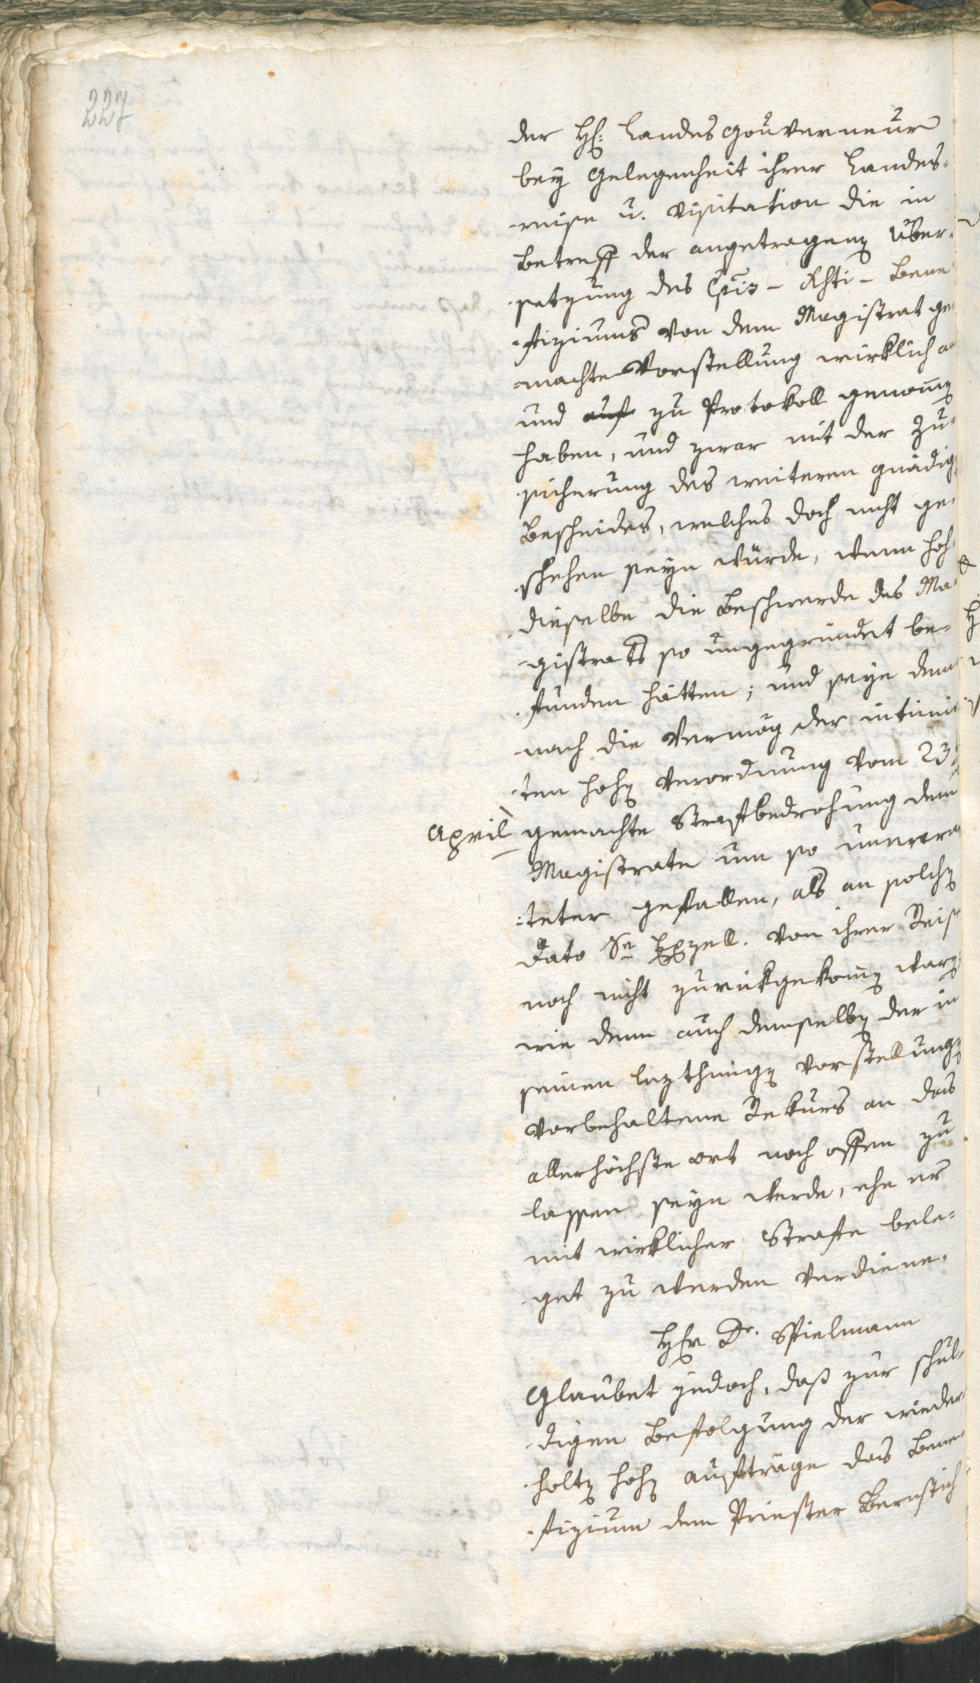 227
der H: Landesgouverneur
bey Gelegenheit ihrer Landes-
reise u. Visitation die in
Betreff der angetragenen Über-
setzung des Cpis-Xsti-Bene
fiziums von dem Magistrat ge
machte Vorstellung wirklich an
und auf zu Protokoll genomen
haben, und zwar mit der Zu-
sicherung des weiteren gnädig
Bescheides, welches doch nicht ge-
schehen seyn würde, wenn hoch
dieselbe die Beschwerde des Ma
gistrats so ungegründet be-
funden hätten; und seye dem
nach die Vermög der intimir
ten hohen Verordnung vom 23
April gemachte Strafbedrohung dem
Magistrate um so unerwar
teter gefallen, als an solchen
Dato Se Exzell. von ihrer Reise
noch nicht zurükgekomen waren
wie denn auch demselben der in
seinen lezthinigen Vorstellungen
vorbehaltene Rekurs an das
allerhöchste Ort noch offen zu
lassen seyn werde, ehe er
mit wirklicher Strafe bele-
get zu werden verdiene.
Hr Dr. Spielmann
Glaubet jedoch, daß zur schul-
digen Befolgung der wieder
holten hohen Aufträge das Bene
fizium dem Priester Bernstich